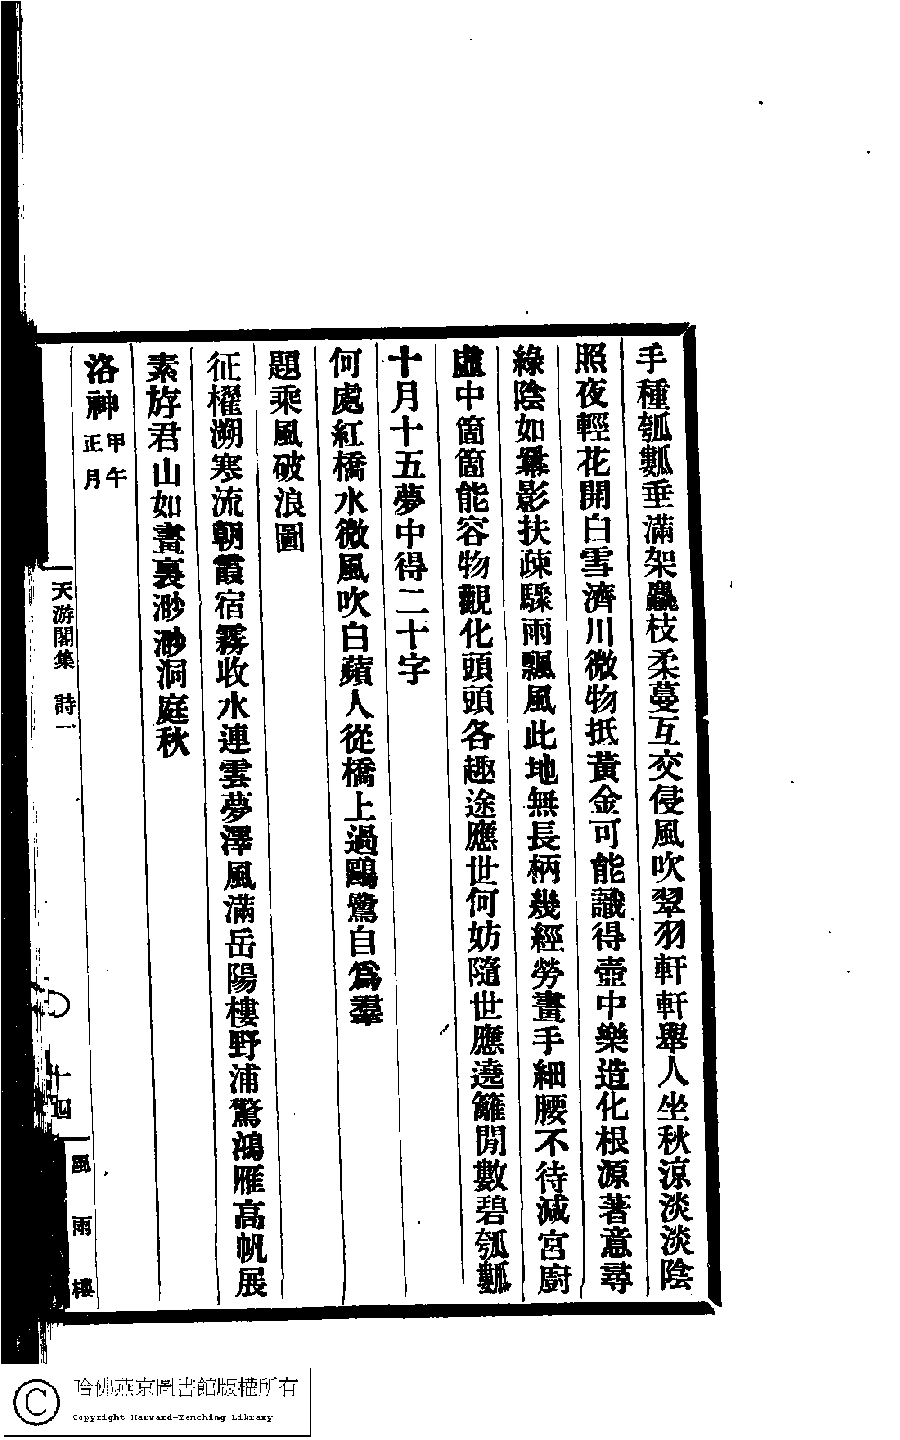 手種瓠瓢垂滿架驫枝柔蔓互交侵風吹翠羽軒軒舉人坐秋涼淡淡陰
照夜輕花開白雪濟川微物抵黃金可能識得壺中樂造化根源著意尋
綠陰如羃影扶疎驟雨飄風此地無長柄幾經勞畫手細腰不待減宮廚
虛中箇箇能容物觀化頭頭各趣途應世何妨隨世應遶籬閒數碧瓠瓢
十月十五夢中得二十字
何處紅橋水微風吹白蘋人從橋上過鷗鷺自爲羣
題乘風破浪圖
征櫂溯寒流朝霞宿霧收水連雲夢澤風滿岳陽樓野浦驚鴻雁高帆展
素斿君山如畫裏渺渺洞庭秋
洛神 甲午正月
天游閣集 詩一
十四
風雨樓
哈佛燕京圖書館版權所有
Copyright Harvard-Yenching Library